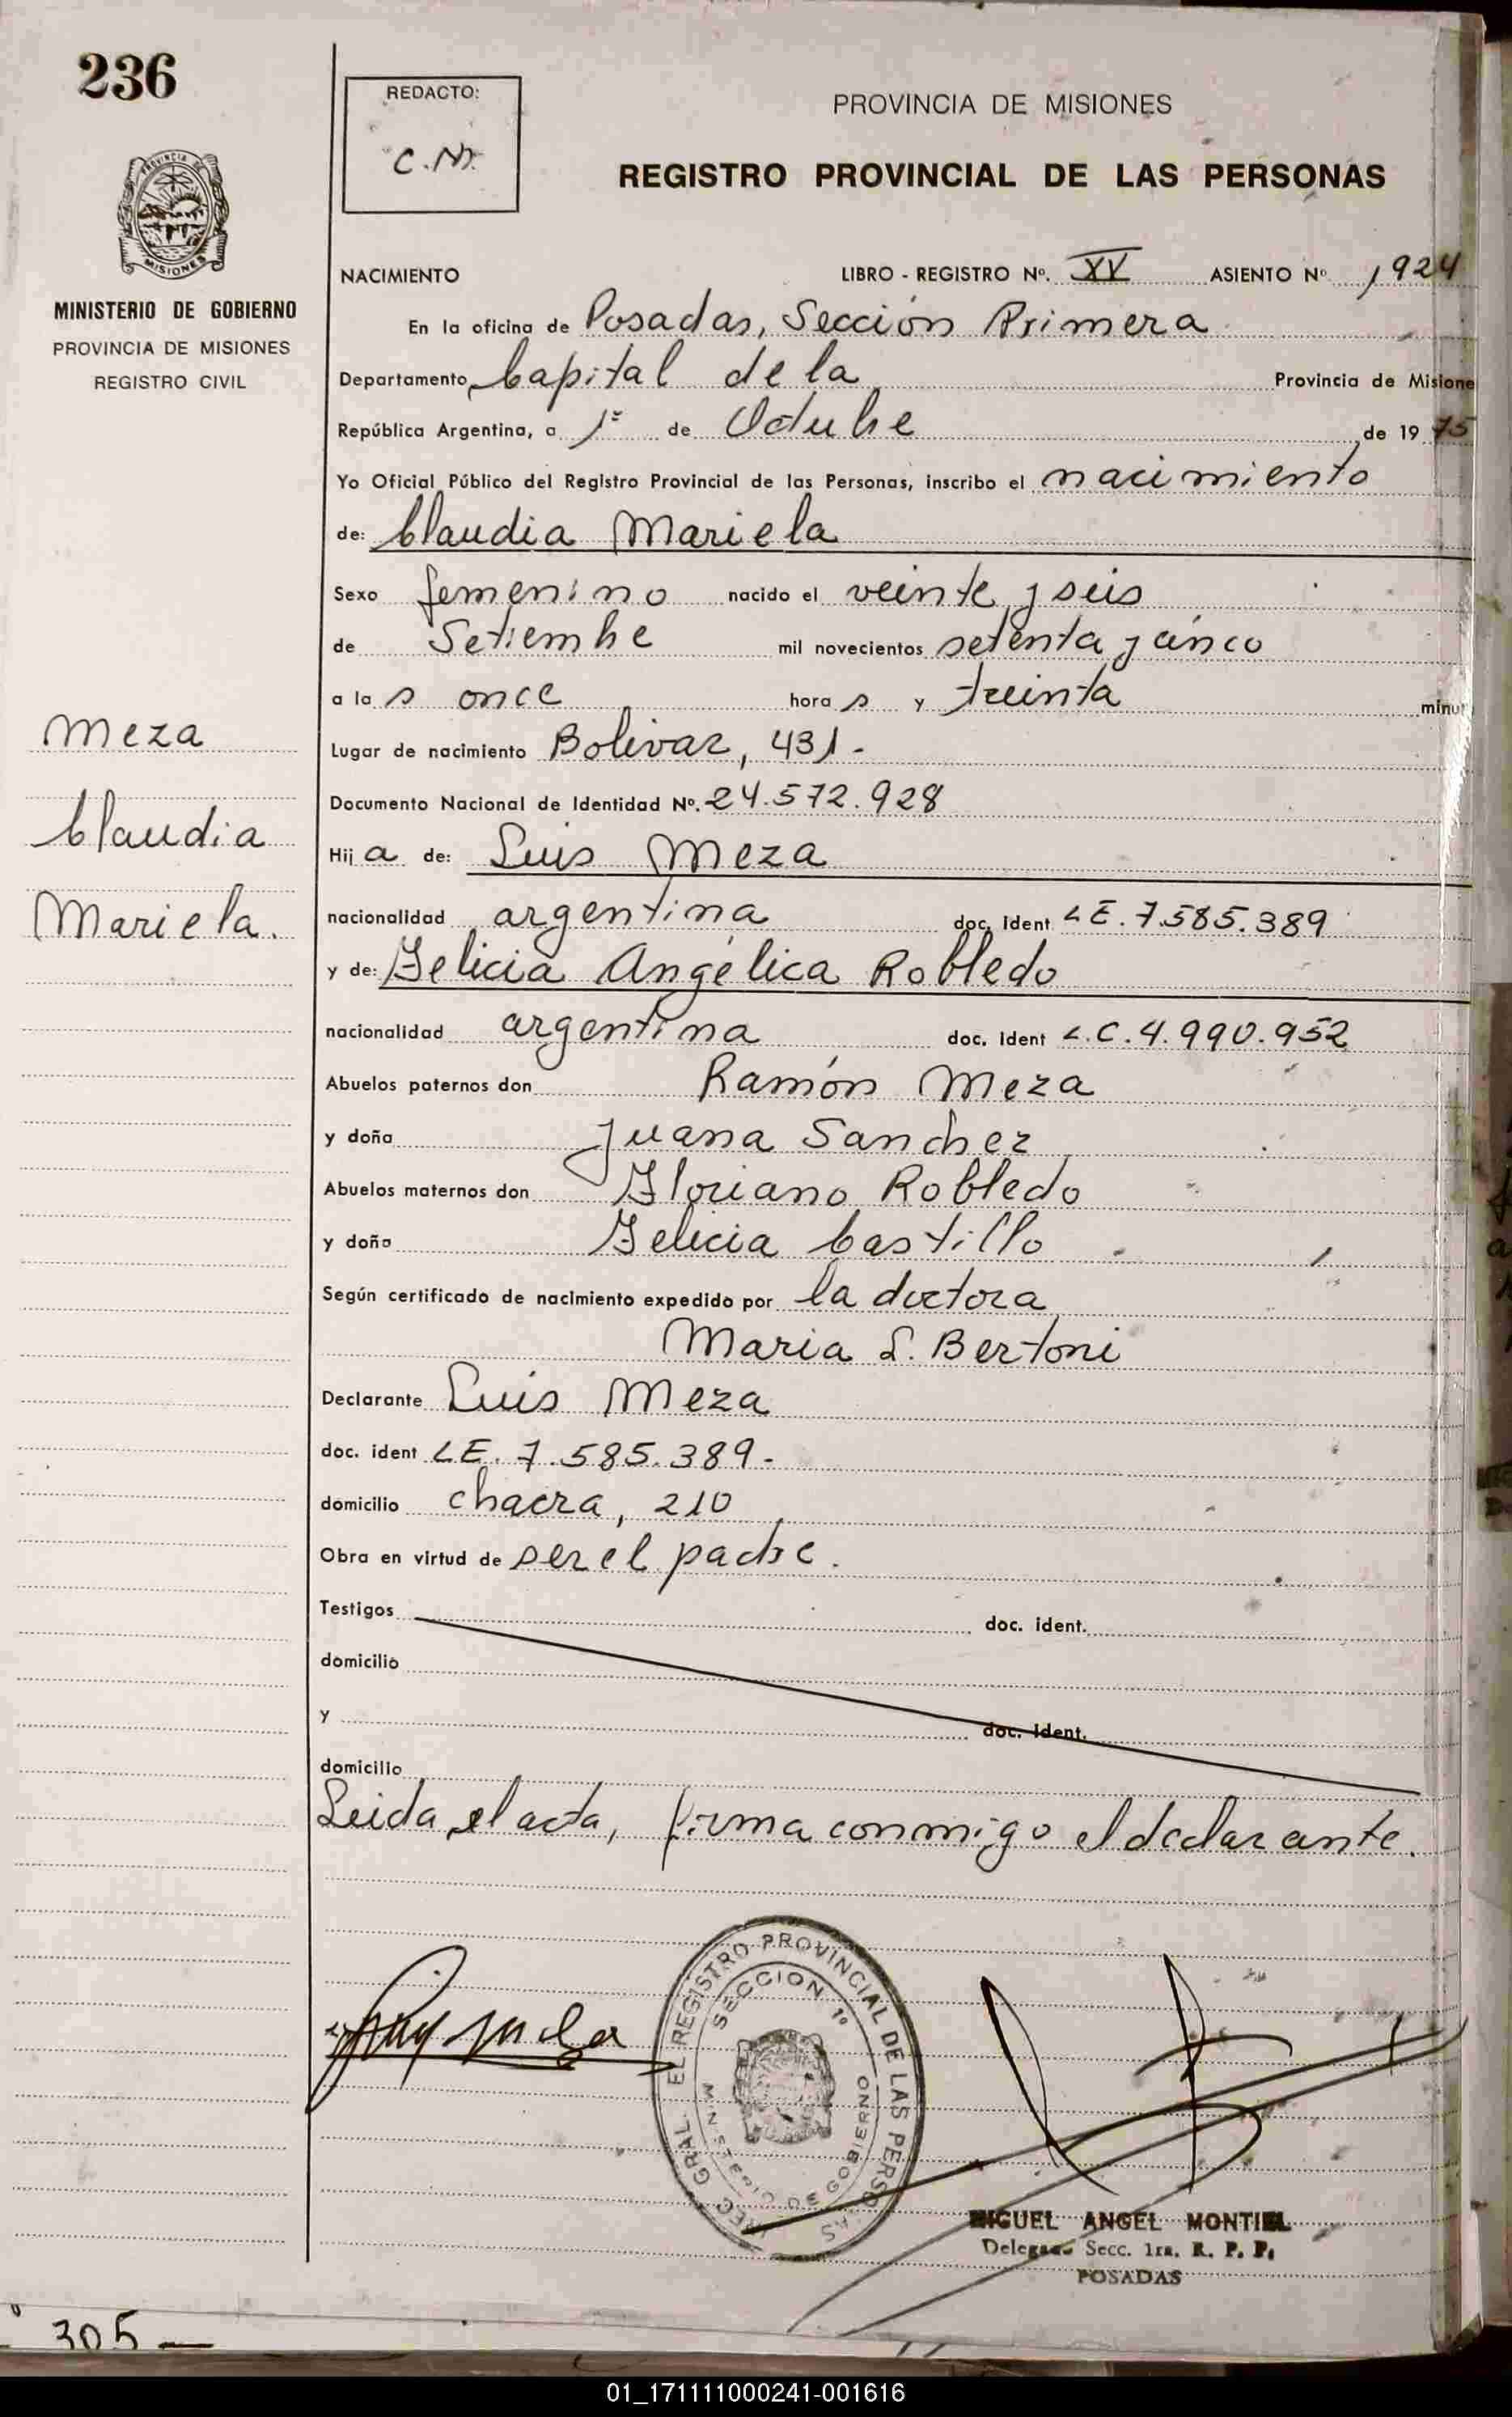 236
REDACTO:
C.M.
PROVINCIA DE MISIONES
REGISTRO PROVINCIAL DE LAS PERSONAS
PROVINCIA DE
MISIONES
MINISTERIO DE GOBIERNO
PROVINCIA DE MISIONES
REGISTRO CIVIL
NACIMIENTO LIBRO - REGISTRO Nº. XV ASIENTO Nº 1924
En la oficina de Posadas, Sección Primera
Departamento Capital de la Provincia de Misione
República Argentina, a 1º de Octubre de 1975
Yo Oficial Público del Registro Provincial de las Personas, inscribo el nacimiento
de: Claudia Mariela
Sexo femenino nacido el veinte y seis
de Setiembre mil novecientos setenta y cinco
a la s once hora s y treinta minut
Lugar de nacimiento Bolivar, 431.-
Documento Nacional de Identidad Nº. 24.572.928
Hij a de: Luis Meza
nacionalidad argentina doc. ident LE. 7.585.389
y de: Felicia Angélica Robledo
nacionalidad argentina doc. ident L.C. 4.990.952
Abuelos paternos don Ramón Meza
y doña Juana Sanchez
Abuelos maternos don Floriano Robledo
y doña Felicia Castillo
Según certificado de nacimiento expedido por la doctora
Maria L. Bertoni
Declarante Luis Meza
doc. ident LE. 7.585.389.-
domicilio chacra, 210
Obra en virtud de ser el padre.
Testigos doc. ident.
domicilio
y doc. ident.
domicilio
Leida el acta, firma conmigo el declarante.
Meza
Claudia
Mariela.
REC. GRAL. EL REGISTRO PROVINCIAL DE LAS PERSONAS
SECCION 1º
MINISTERIO DE GOBIERNO
MIGUEL ANGEL MONTIEL
Delegado Secc. 1ra. R. P. P.
POSADAS
305 —
01_171111000241-001616